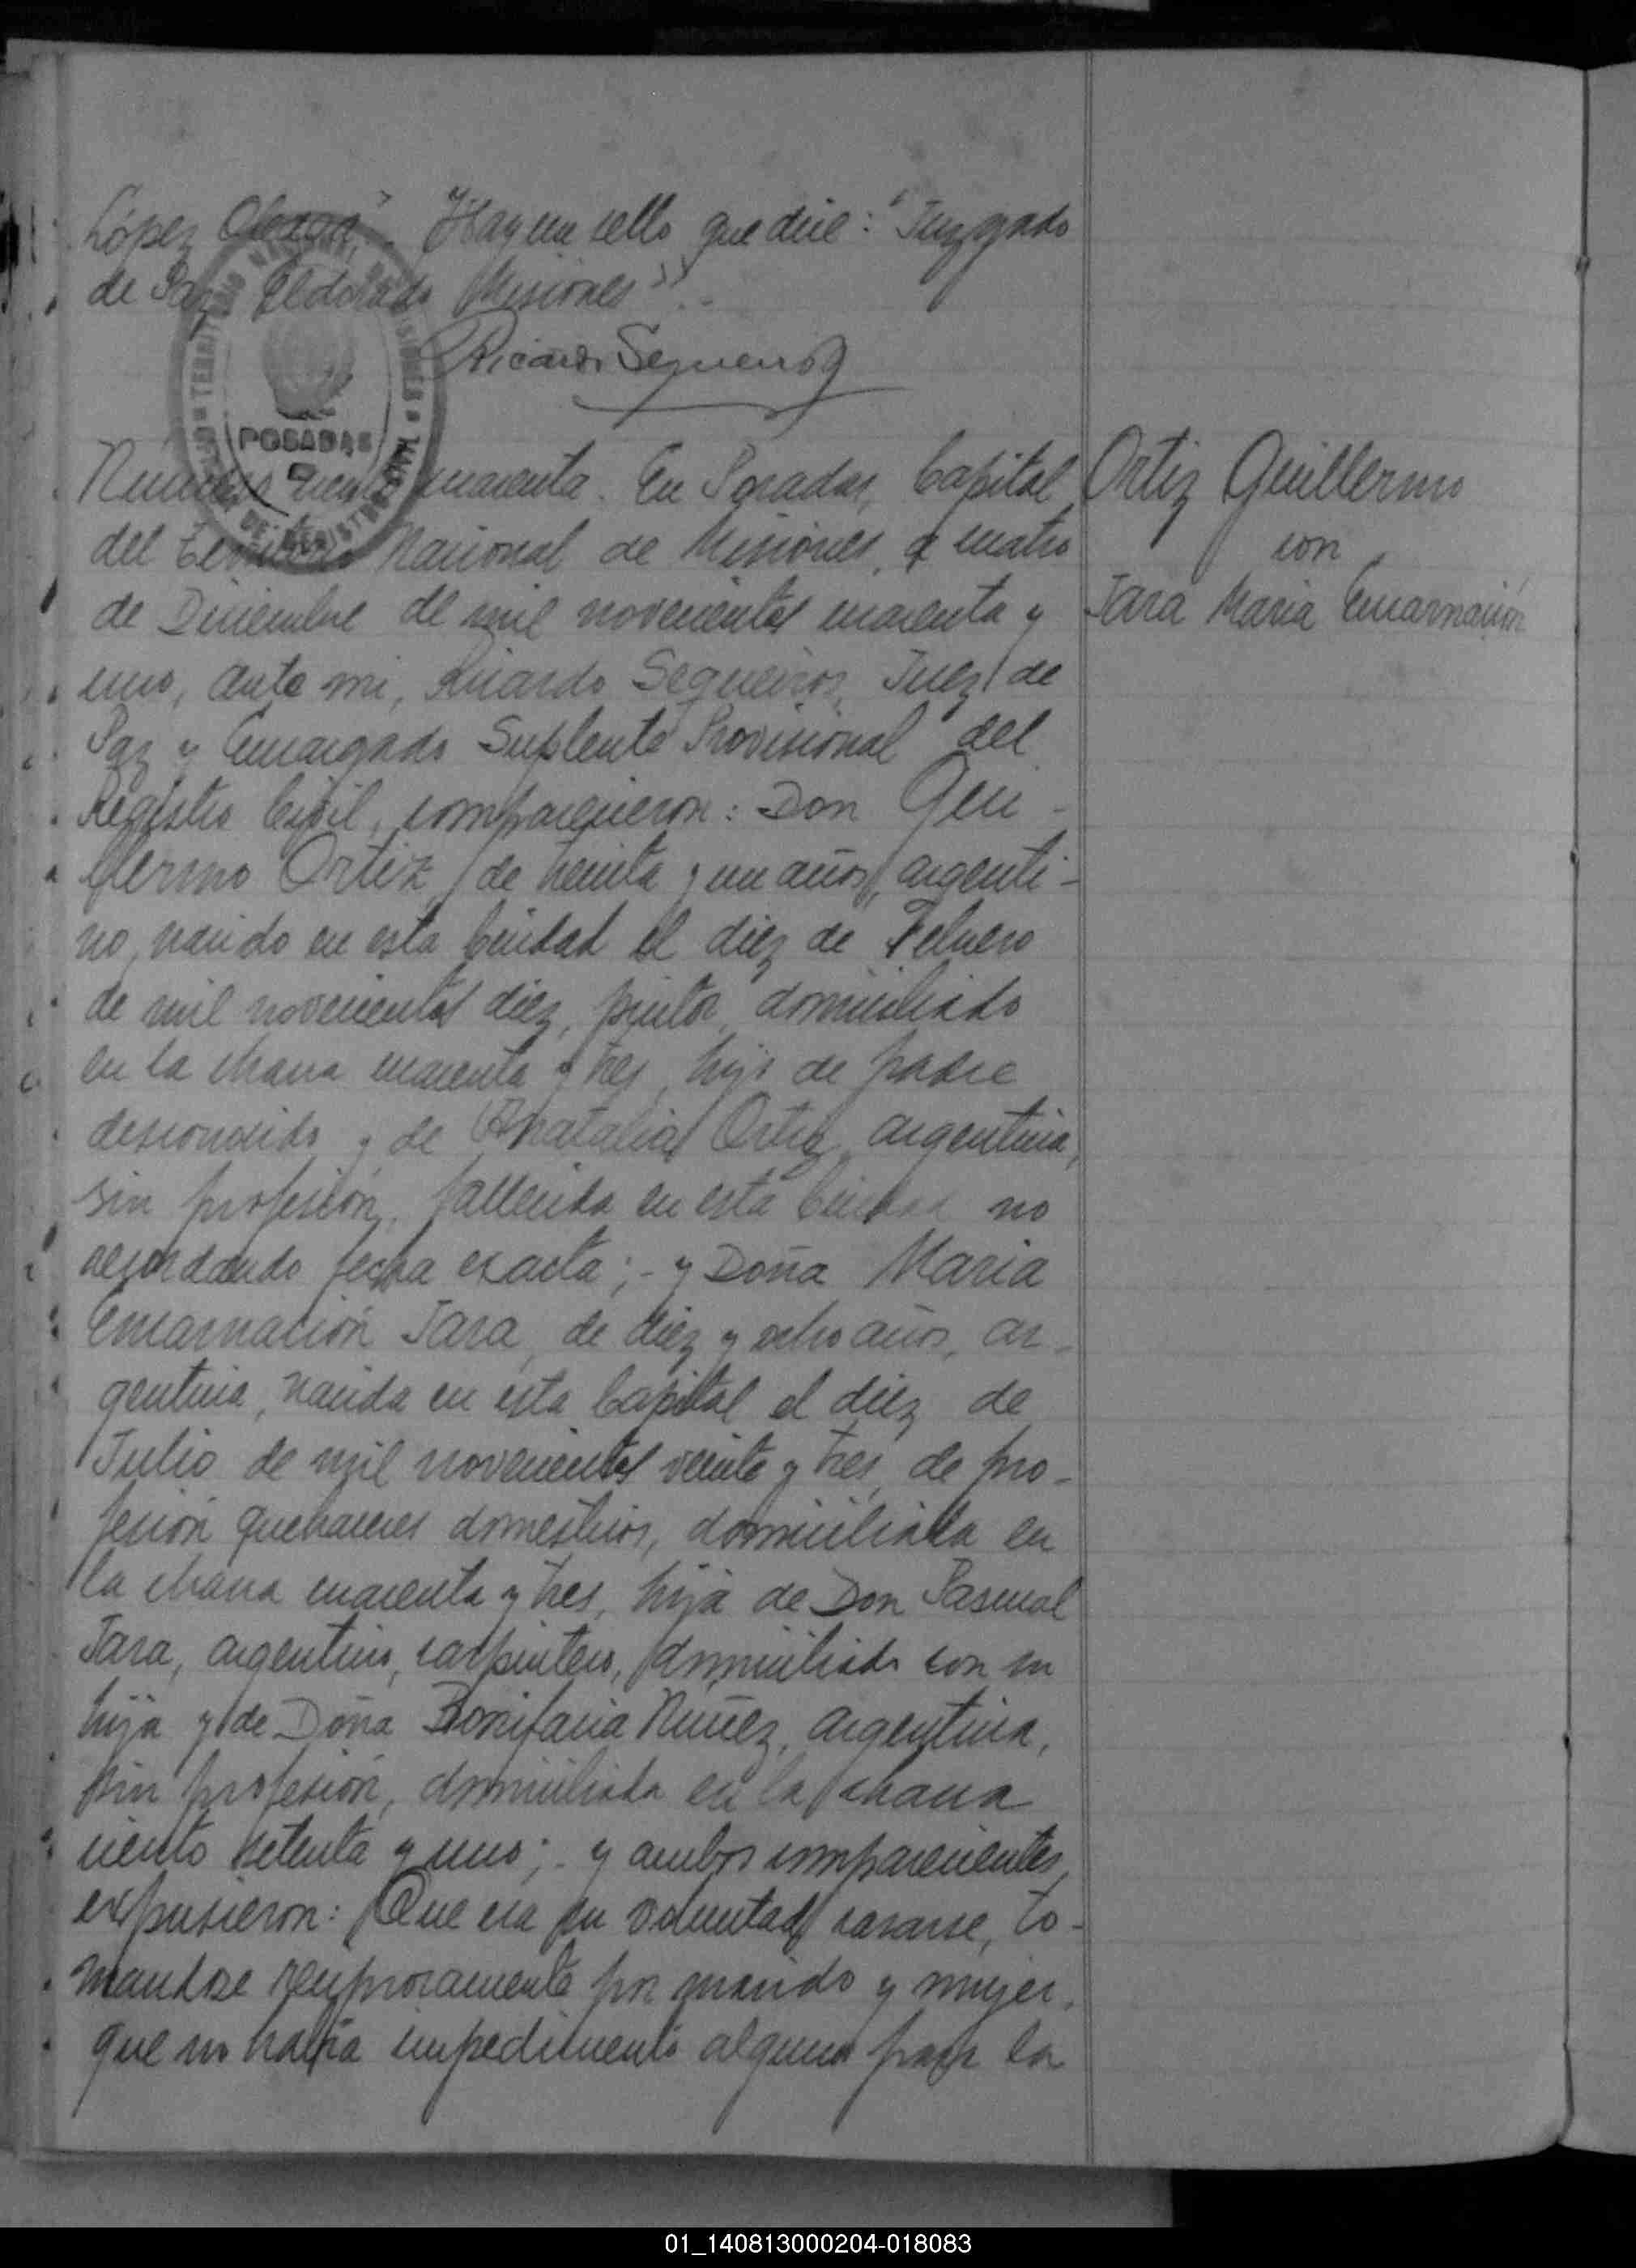 López . Hay un sello que dice: "Juzgado
de Paz Eldorado Misiones".-
Ricardo Sequeiros
TERRITORIO NACIONAL DE MISIONES
POSADAS
Número ciento cuarenta. En Posadas, Capital
del Territorio Nacional de Misiones, a cuatro
de Diciembre de mil novecientos cuarenta y
uno, ante mi, Ricardo Sequeiros, Juez de
Paz y Encargado Suplente Provisional del
Registro Civil, comparecieron: Don Gui-
llermo Ortiz, de treinta y un años, argenti-
no, nacido en esta Ciudad el diez de Febrero
de mil novecientos diez, pintor, domiciliado
en la chacra cuarenta y tres, hijo de padre
desconocido y de Natalia Ortiz, argentina,
sin profesión, fallecida en esta Ciudad no
recordando fecha exacta;- y Doña Maria
Encarnación Jara, de diez y ocho años, ar-
gentina, nacida en esta Capital el diez de
Julio de mil novecientos veinte y tres, de pro-
fesión quehaceres domesticos, domiciliada en
la chacra cuarenta y tres, hija de Don Pascual
Jara, argentino, carpintero, domiciliado con su
hija y de Doña Bonifacia Nuñez, argentina,
sin profesión, domiciliada en la chacra
ciento setenta y uno;- y ambos comparecientes,
expusieron: Que era su voluntad casarse, to-
mandose reciprocamente por marido y mujer,
que no habia impedimento alguno para la
Ortiz Guillermo
con
Jara Maria Encarnación
01_140813000204-018083